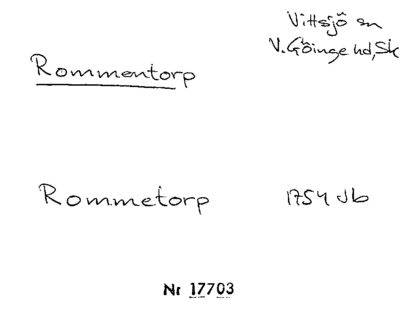 Vittsjö sn
V. Göinge hd, Sk
Rommentorp
Rommetorp 1754 Jb
Nr 17703